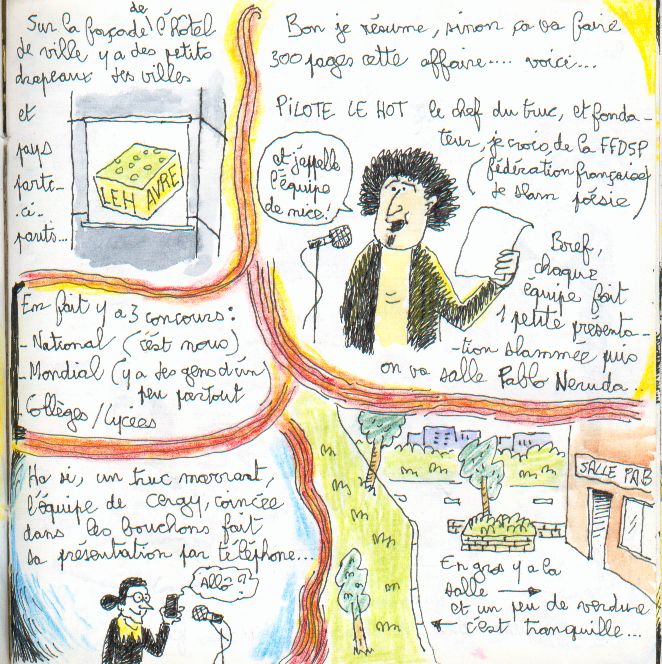 Sur la façade de l'hôtel
de ville y a des petits
drapeaux des villes
et
pays
parti-
ci-
pants...
LEH AVRE
Bon je résume, sinon ça va faire
300 pages cette affaire.... voici...
PILOTE LE HOT le chef du truc, et fonda-
teur, je crois, de la FFDSP
(fédération française
de slam poésie)
et j'appelle
l'équipe
de nice!
Boref,
chaque
équipe fait
1 petite présenta-
-tion slammée puis
on va salle Pablo Neruda...
En fait y a 3 concours:
- National (c'est nous)
- Mondial (y a des gens d'un
peu partout
- Collèges/Lycées
Ha si, un truc marrant,
l'équipe de Cergy, coincée
dans les bouchons fait
sa présentation par téléphone...
allô?
SALLE PAB
En gros y a la
salle →
et un peu de verdure
← c'est tranquille...